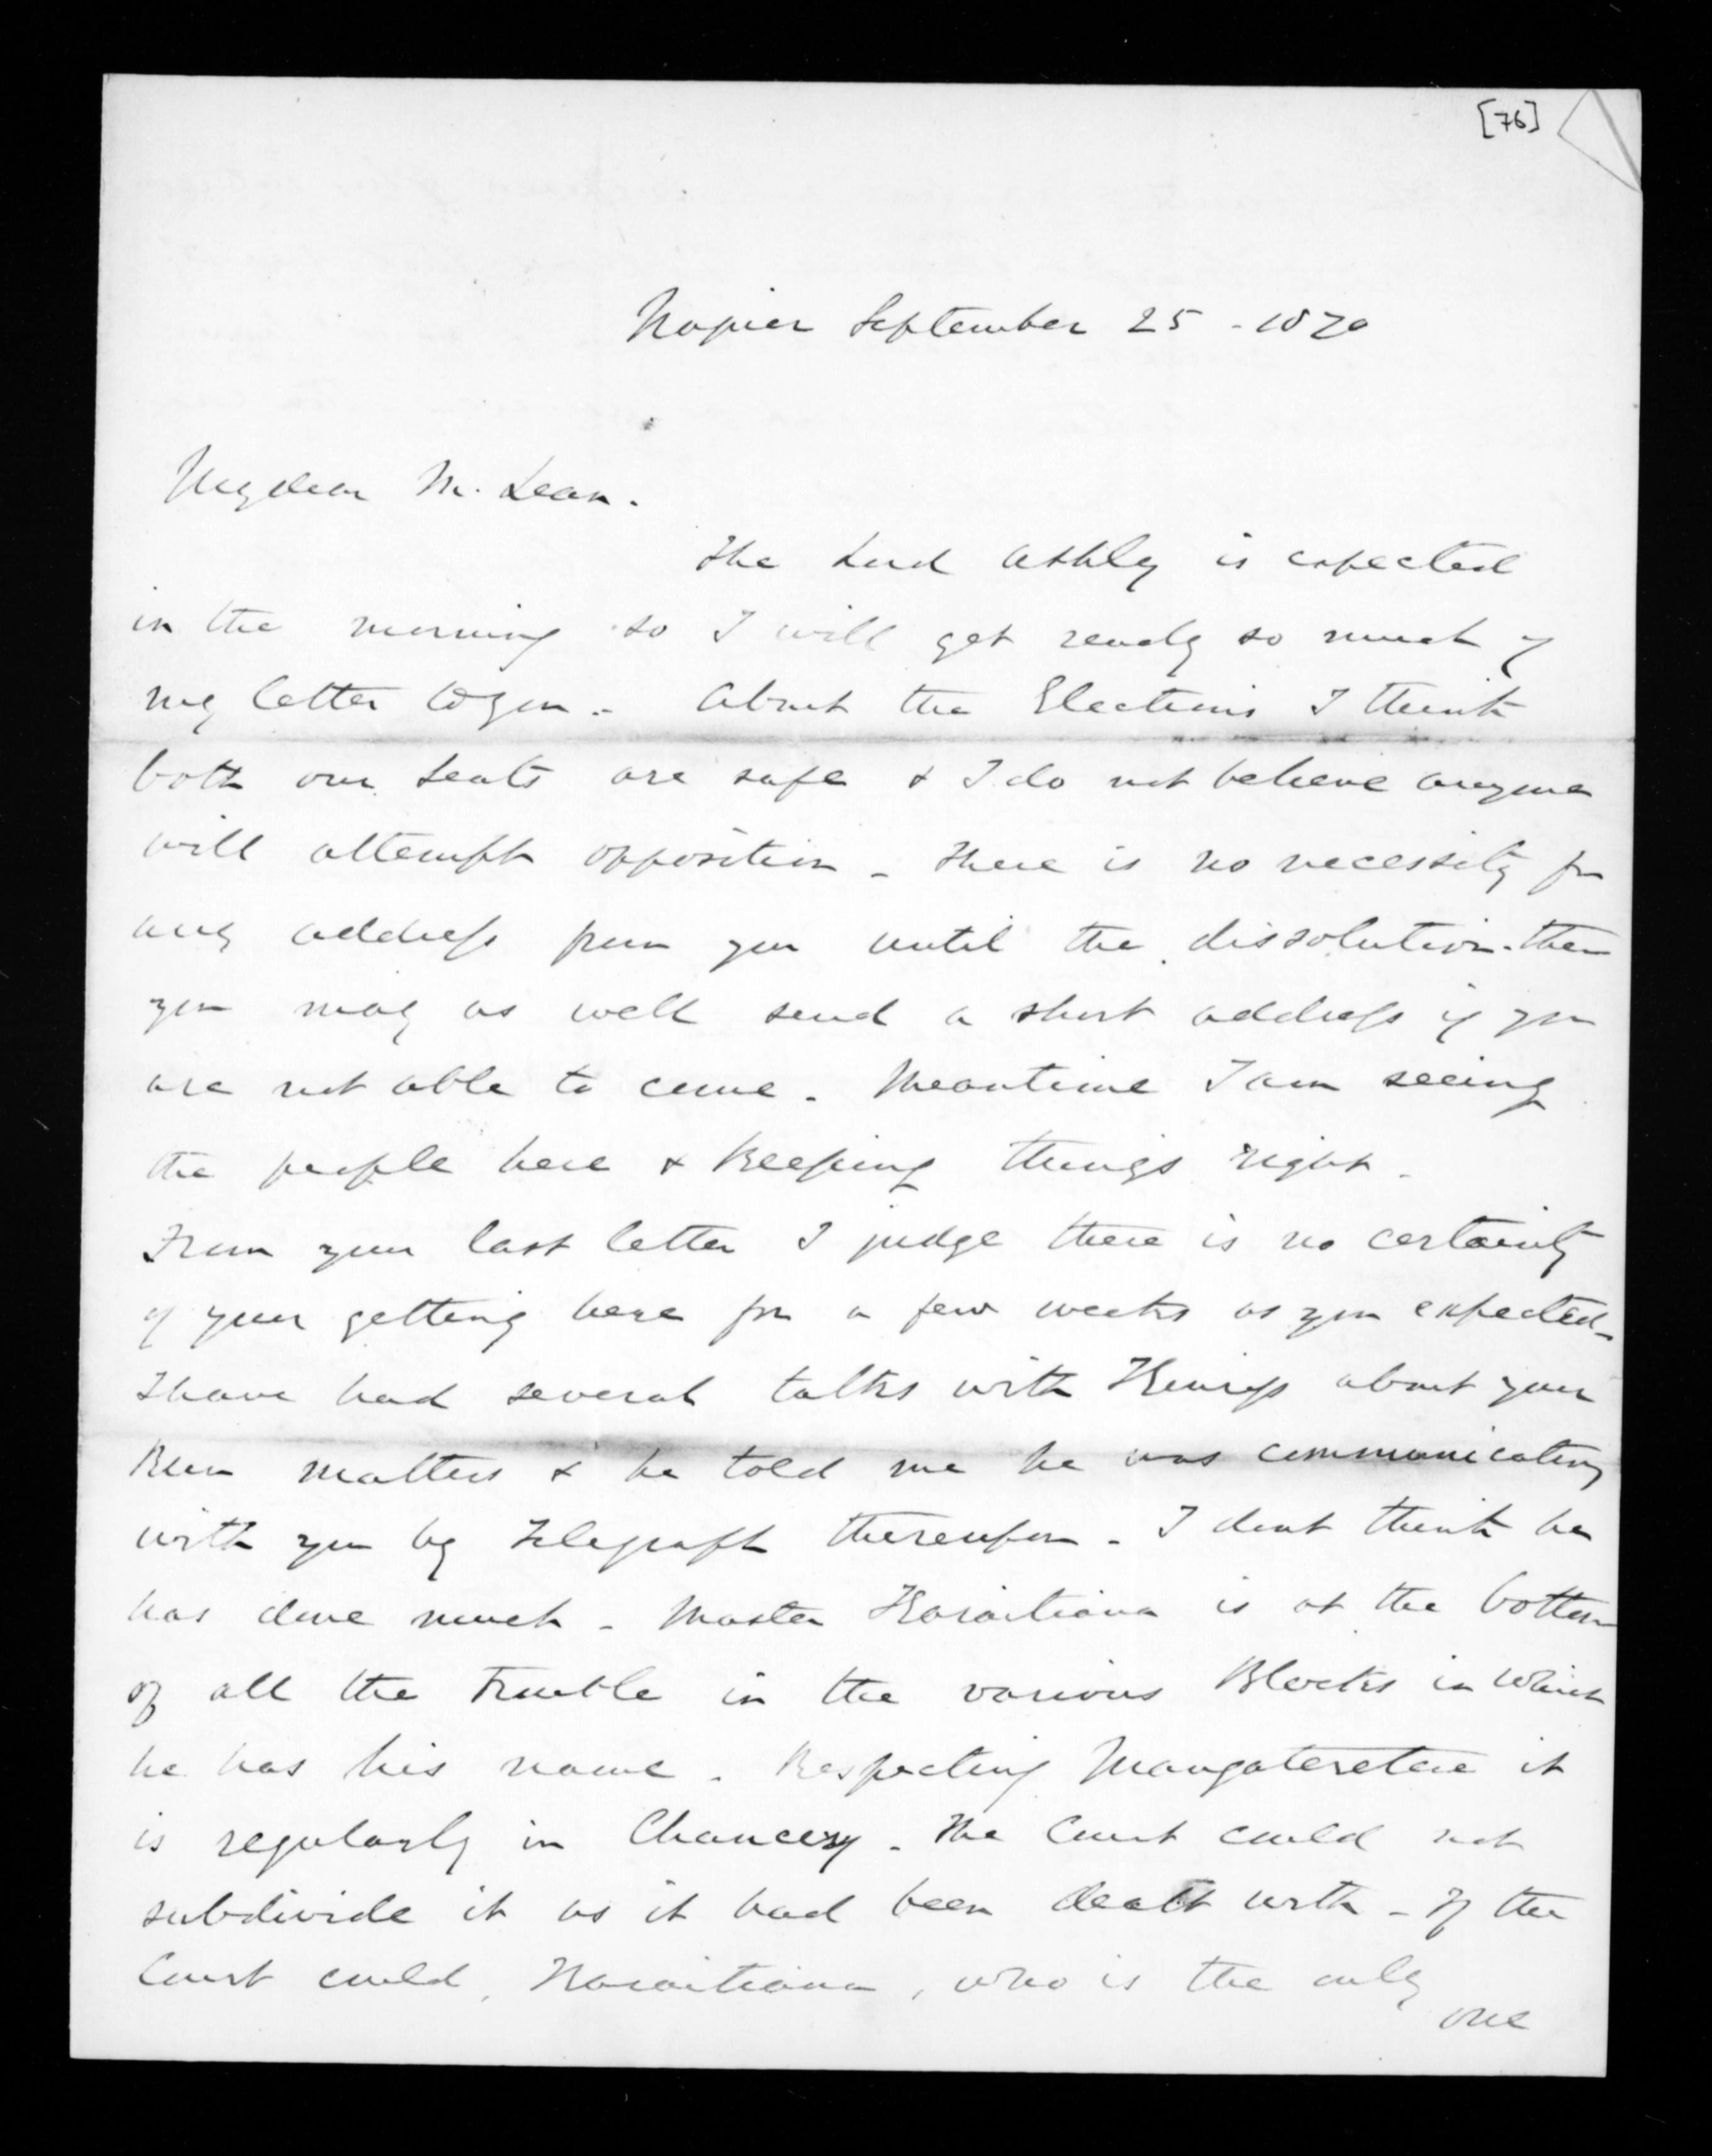 [76]
Napier September 25 - 1870
My dear McLean.
The Lord Ashley is expected
in the morning so I will get ready so much of
my letter to you. - About the Elections I think
both our seats are safe & I do not believe anyone
will attempt opposition - there is no necessity for
any address from you until the dissolution. then
you may as well send a short address if you
are not able to come. Meantime I am seeing
the people here & keeping things right.
From your last letter I judge there is no certainty
of your getting here for a few weeks as you expected -
I have had several talks with about your
Run matters & he told me he was communicating
with you by Telegraph thereupon - I dont think he
has done much - Master Karaitiana is at the bottom
of all the trouble in the various Blocks in which
he has his name. Respecting Mangateretere it
is regularly in Chancery - The Court could not
subdivide it as it had been dealt with - If the
Court could, Karaitiana, who is the only
one